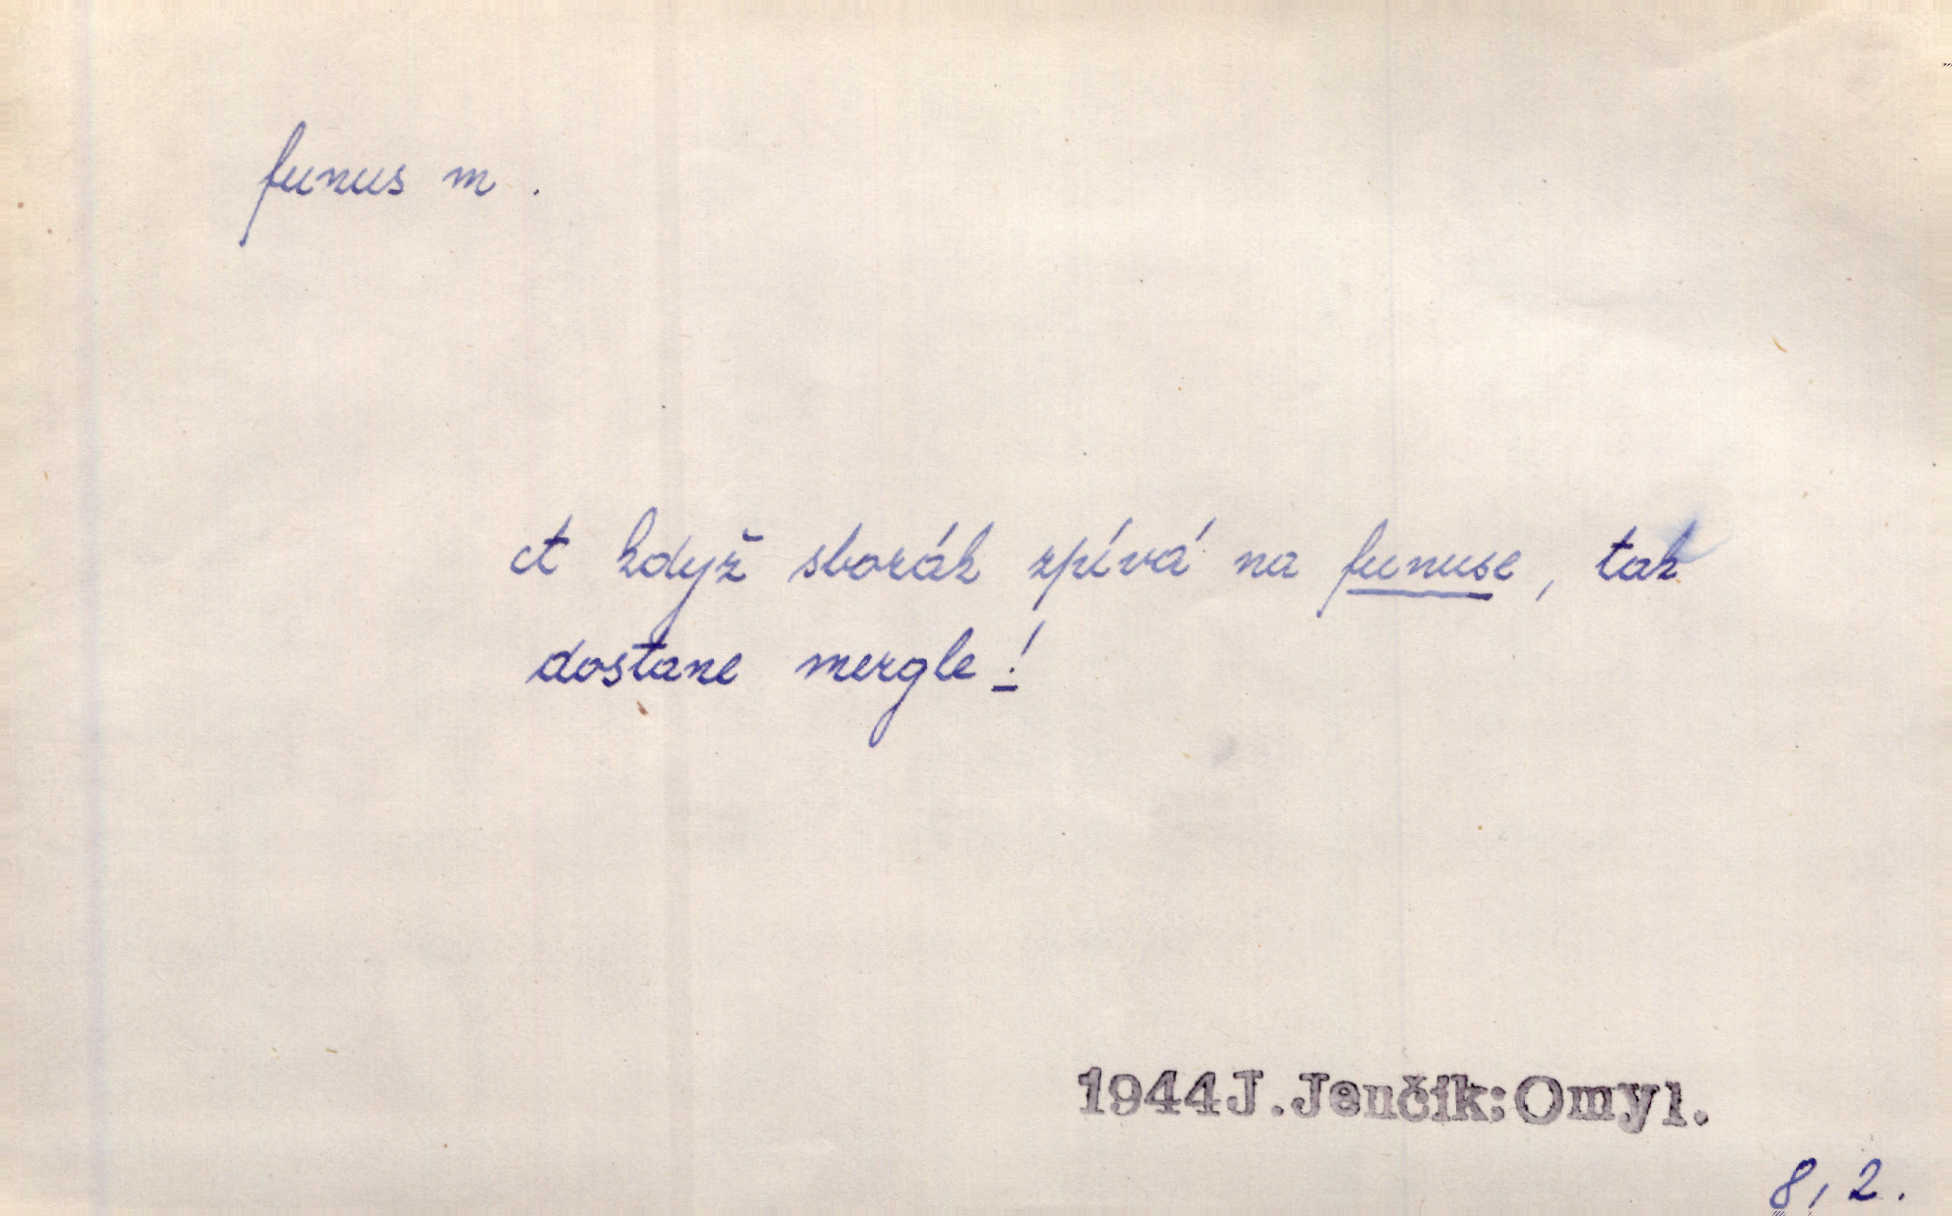 funus m.
A když sborák zpívá na funuse, tak
dostane mergle!
1944 J. Jenčík: Omyl.
8, 2.